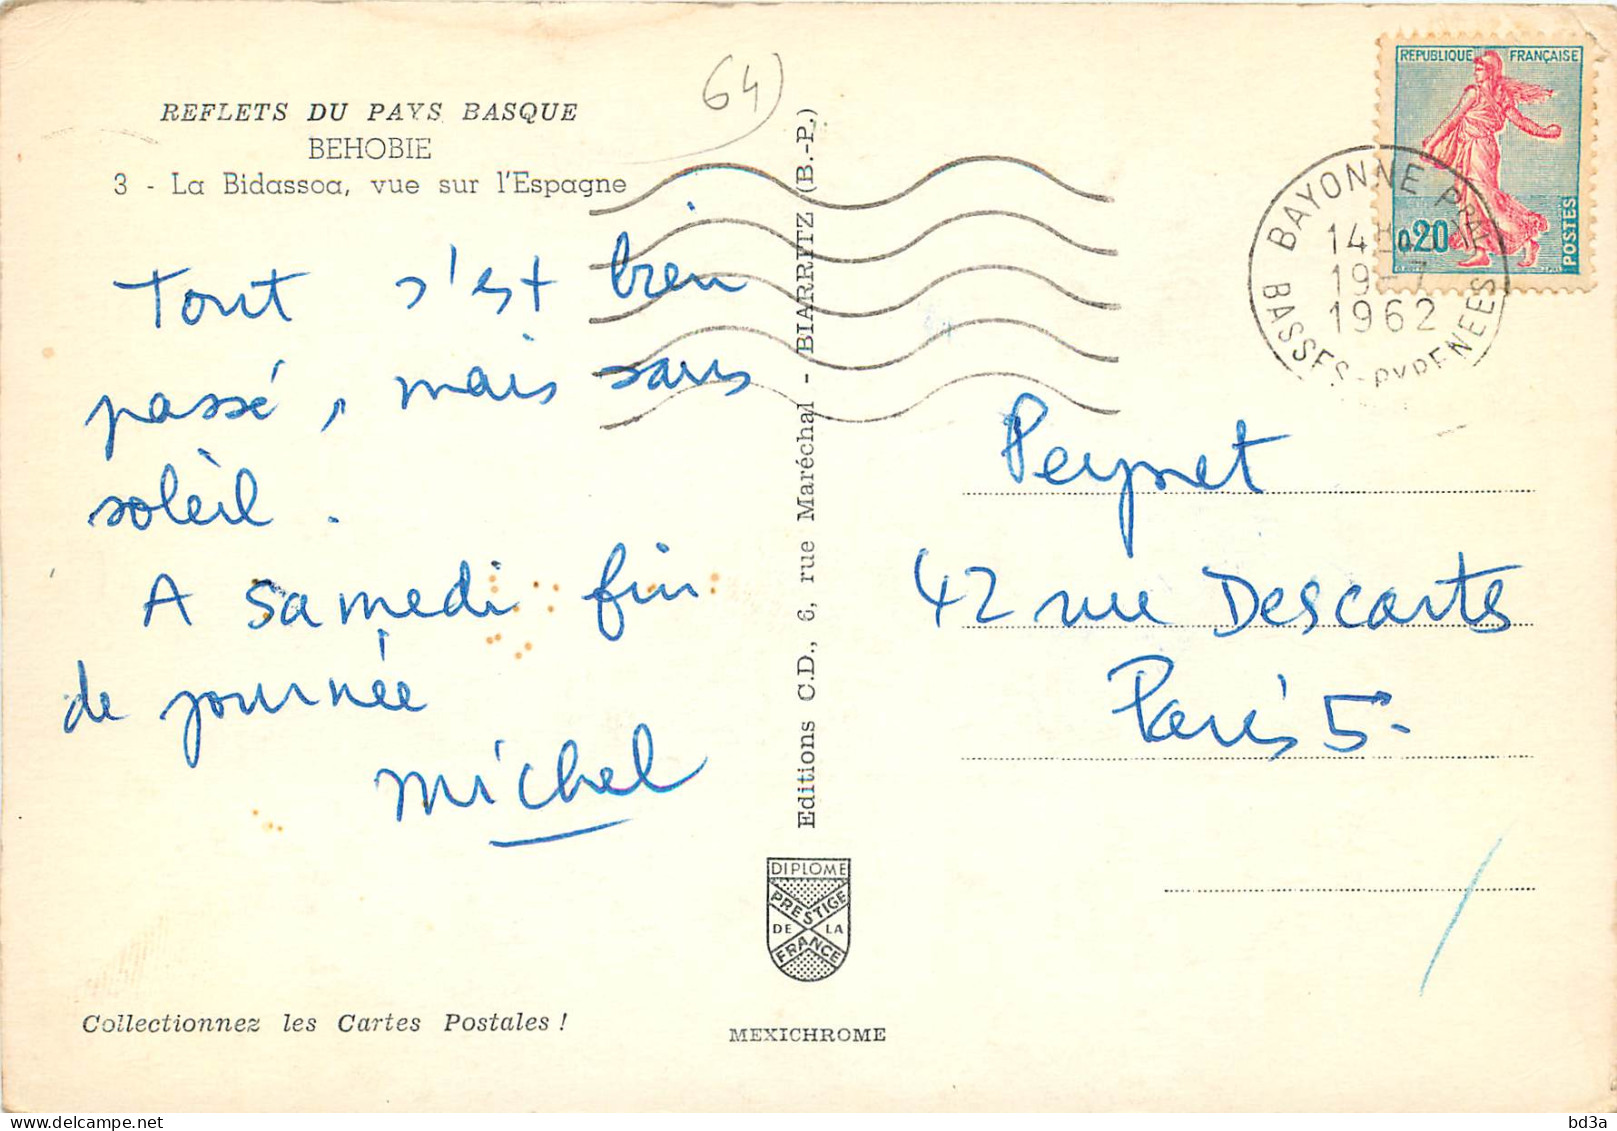 REFLETS DU PAYS BASQUE
BEHOBIE
3 - La Bidassoa, vue sur l'Espagne
64)
Tout s'est bien
passé, mais sans
soleil.
A samedi fin
de journée
Michel
Collectionnez les Cartes Postales !
Editions C.D., 6, rue Maréchal - BIARRITZ (B.-P.)
DIPLOME
PRESTIGE
DE LA
FRANCE
MEXICHROME
REPUBLIQUE FRANÇAISE
0,20
POSTES
BAYONNE PPAL
14H
19-7
1962
BASSES-PYRENEES
Peynet
42 rue Descartes
Paris 5
delcampe.net
bd3a